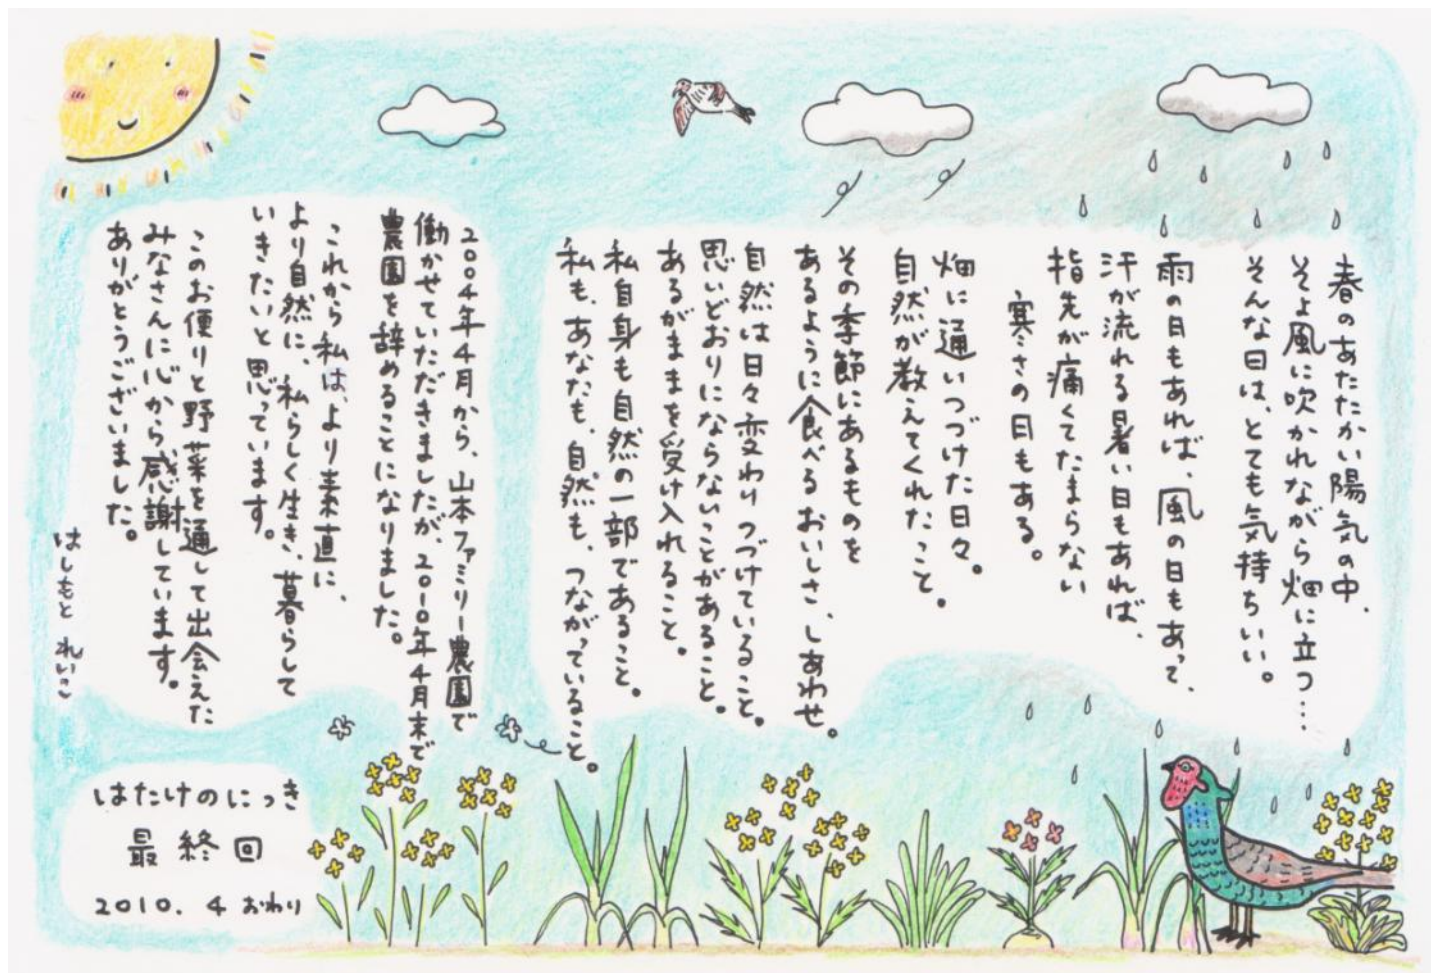 春のあたたかい陽気の中、
そよ風に吹かれながら畑に立つ…
そんな日は、とても気持ちいい。
雨の日もあれば、風の日もあって、
汗が流れる暑い日もあれば、
指先が痛くてたまらない
寒さの日もある。
畑に通いつづけた日々。
自然が教えてくれたこと。
その季節にあるものを
あるように食べるおいしさ、しあわせ。
自然は日々変わりつづけていること。
思いどおりにならないことがあること。
あるがままを受け入れること。
私自身も自然の一部であること。
私も、あなたも、自然も、つながっていること。
2004年4月から、山本ファミリー農園で
働かせていただきましたが、2010年4月末で
農園を辞めることになりました。
これから私は、より素直に、
より自然に、私らしく生き、暮らして
いきたいと思っています。
このお便りと野菜を通して出会えた
みなさんに心から感謝しています。
ありがとうございました。
はしもと れいこ
はたけのにっき
最終回
2010.4 おわり